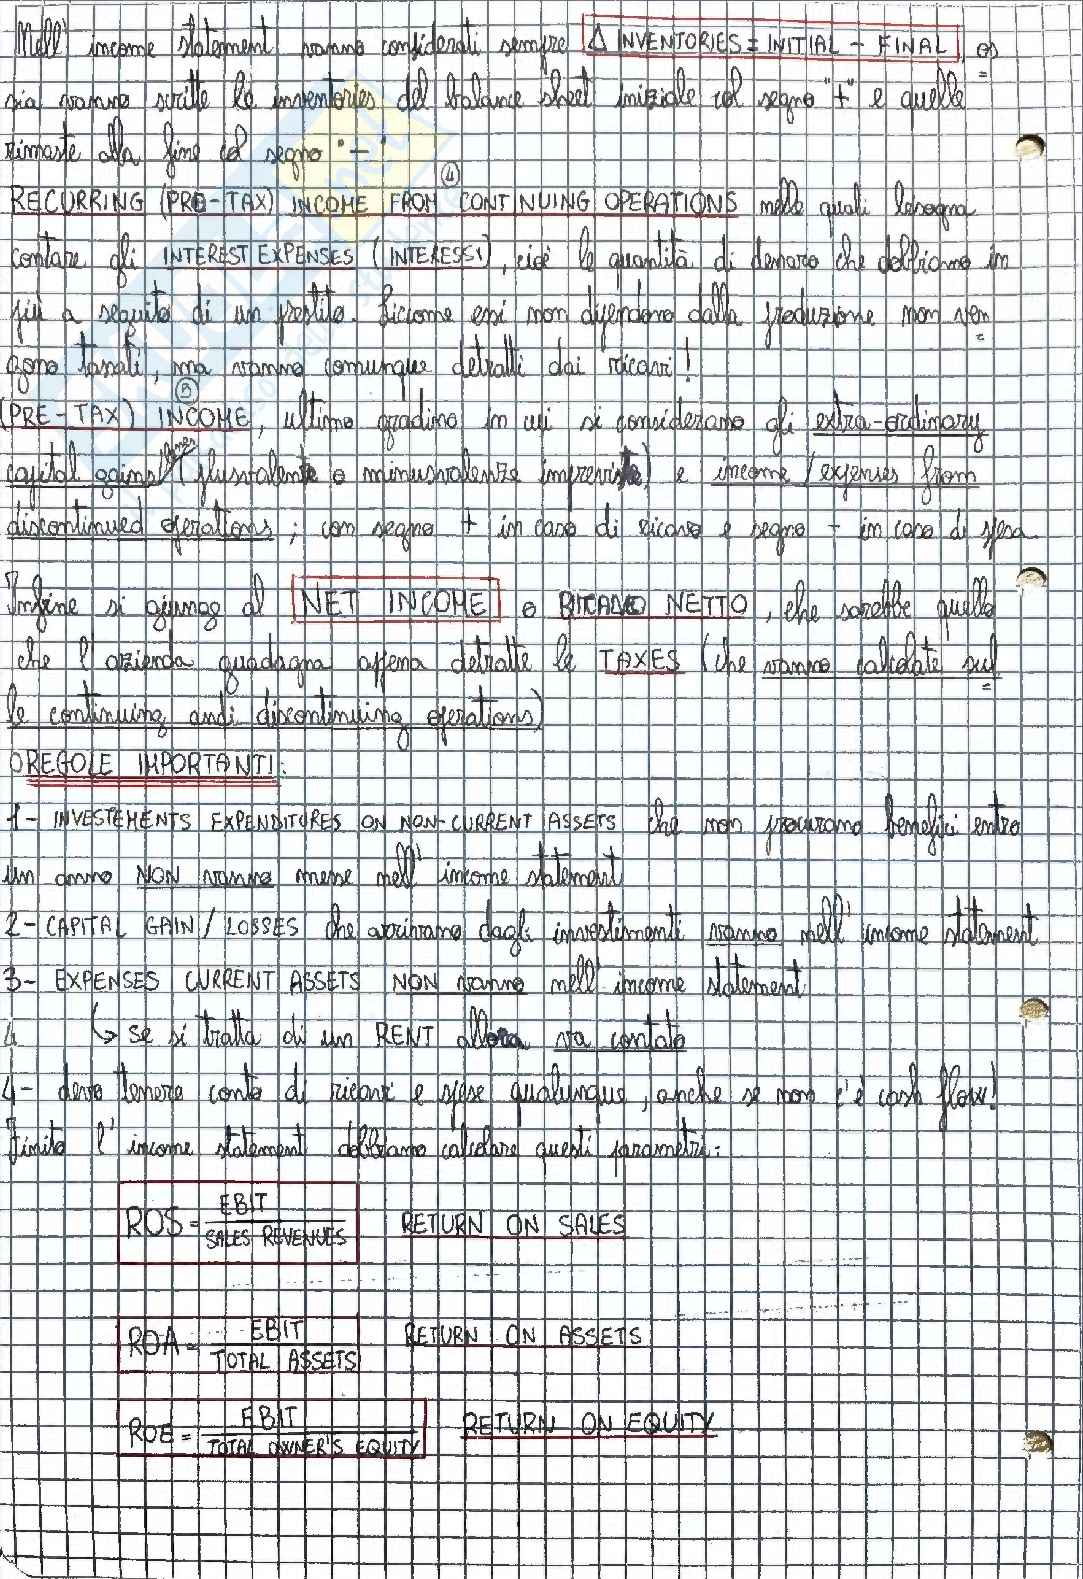 Nell' income statement vanno considerati sempre Δ INVENTORIES = INITIAL - FINAL os
sia vanno scritte le inventories del balance sheet iniziale col segno "+" e quelle
rimaste alla fine col segno "-"
④
RECURRING (PRE-TAX) INCOME FROM CONTINUING OPERATIONS nelle quali bisogna
contare gli INTEREST EXPENSES (INTERESSI), cioè le quantità di denaro che dobbiamo in
più a seguito di un prestito. Siccome essi non dipendono dalla produzione non ven
gono tassati, ma vanno comunque detratti dai ricavi!
⑤
(PRE-TAX) INCOME, ultimo gradino in cui si considerano gli extra-ordinary
capital gains/losses (plusvalente o minusvalenze impreviste) e income/expenses from
discontinued operations; con segno + in caso di ricavo e segno - in caso di spesa.
Infine si giunge al NET INCOME o RICAVO NETTO, che sarebbe quello
che l'azienda guadagna appena detratte le TAXES (che vanno calcolate sul
le continuing and discontinuing operations)
REGOLE IMPORTANTI:
1- INVESTEMENTS EXPENDITURES ON NON-CURRENT ASSETS che non procurano benefici entro
un anno NON vanno messe nell' income statement
2- CAPITAL GAIN / LOSSES che arrivano dagli investimenti vanno nell' income statement
3- EXPENSES CURRENT ASSETS NON vanno nell' income statement
4 ↳ se si tratta di un RENT allora va contato
4- devo tenere conto di ricavi e spese qualunque, anche se non c'è cash flow!
Finito l' income statement dobbiamo calcolare questi parametri:
ROS = EBIT / SALES REVENUES RETURN ON SALES
ROA = EBIT / TOTAL ASSETS RETURN ON ASSETS
ROE = EBIT / TOTAL OWNER'S EQUITY RETURN ON EQUITY